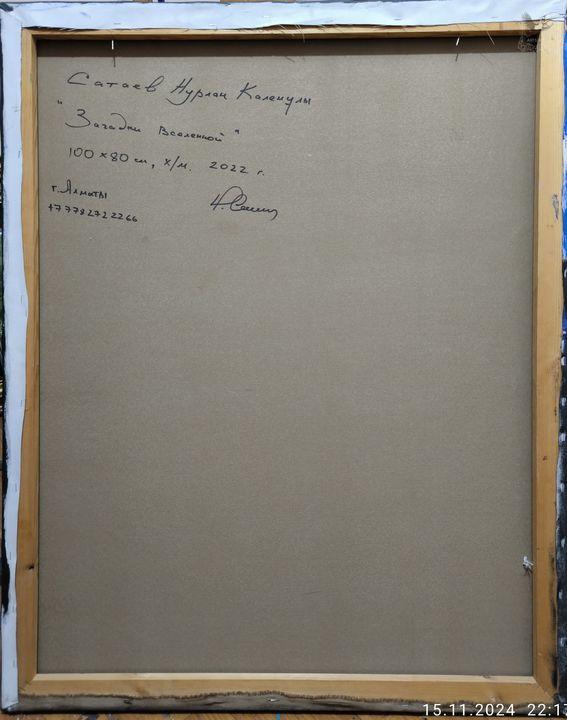 Сатаев Нурлан Каленулы
"Загадки Вселенной"
100 x 80 см, х/м. 2022 г.
г. Алматы
+77782722266
15.11.2024 22:13